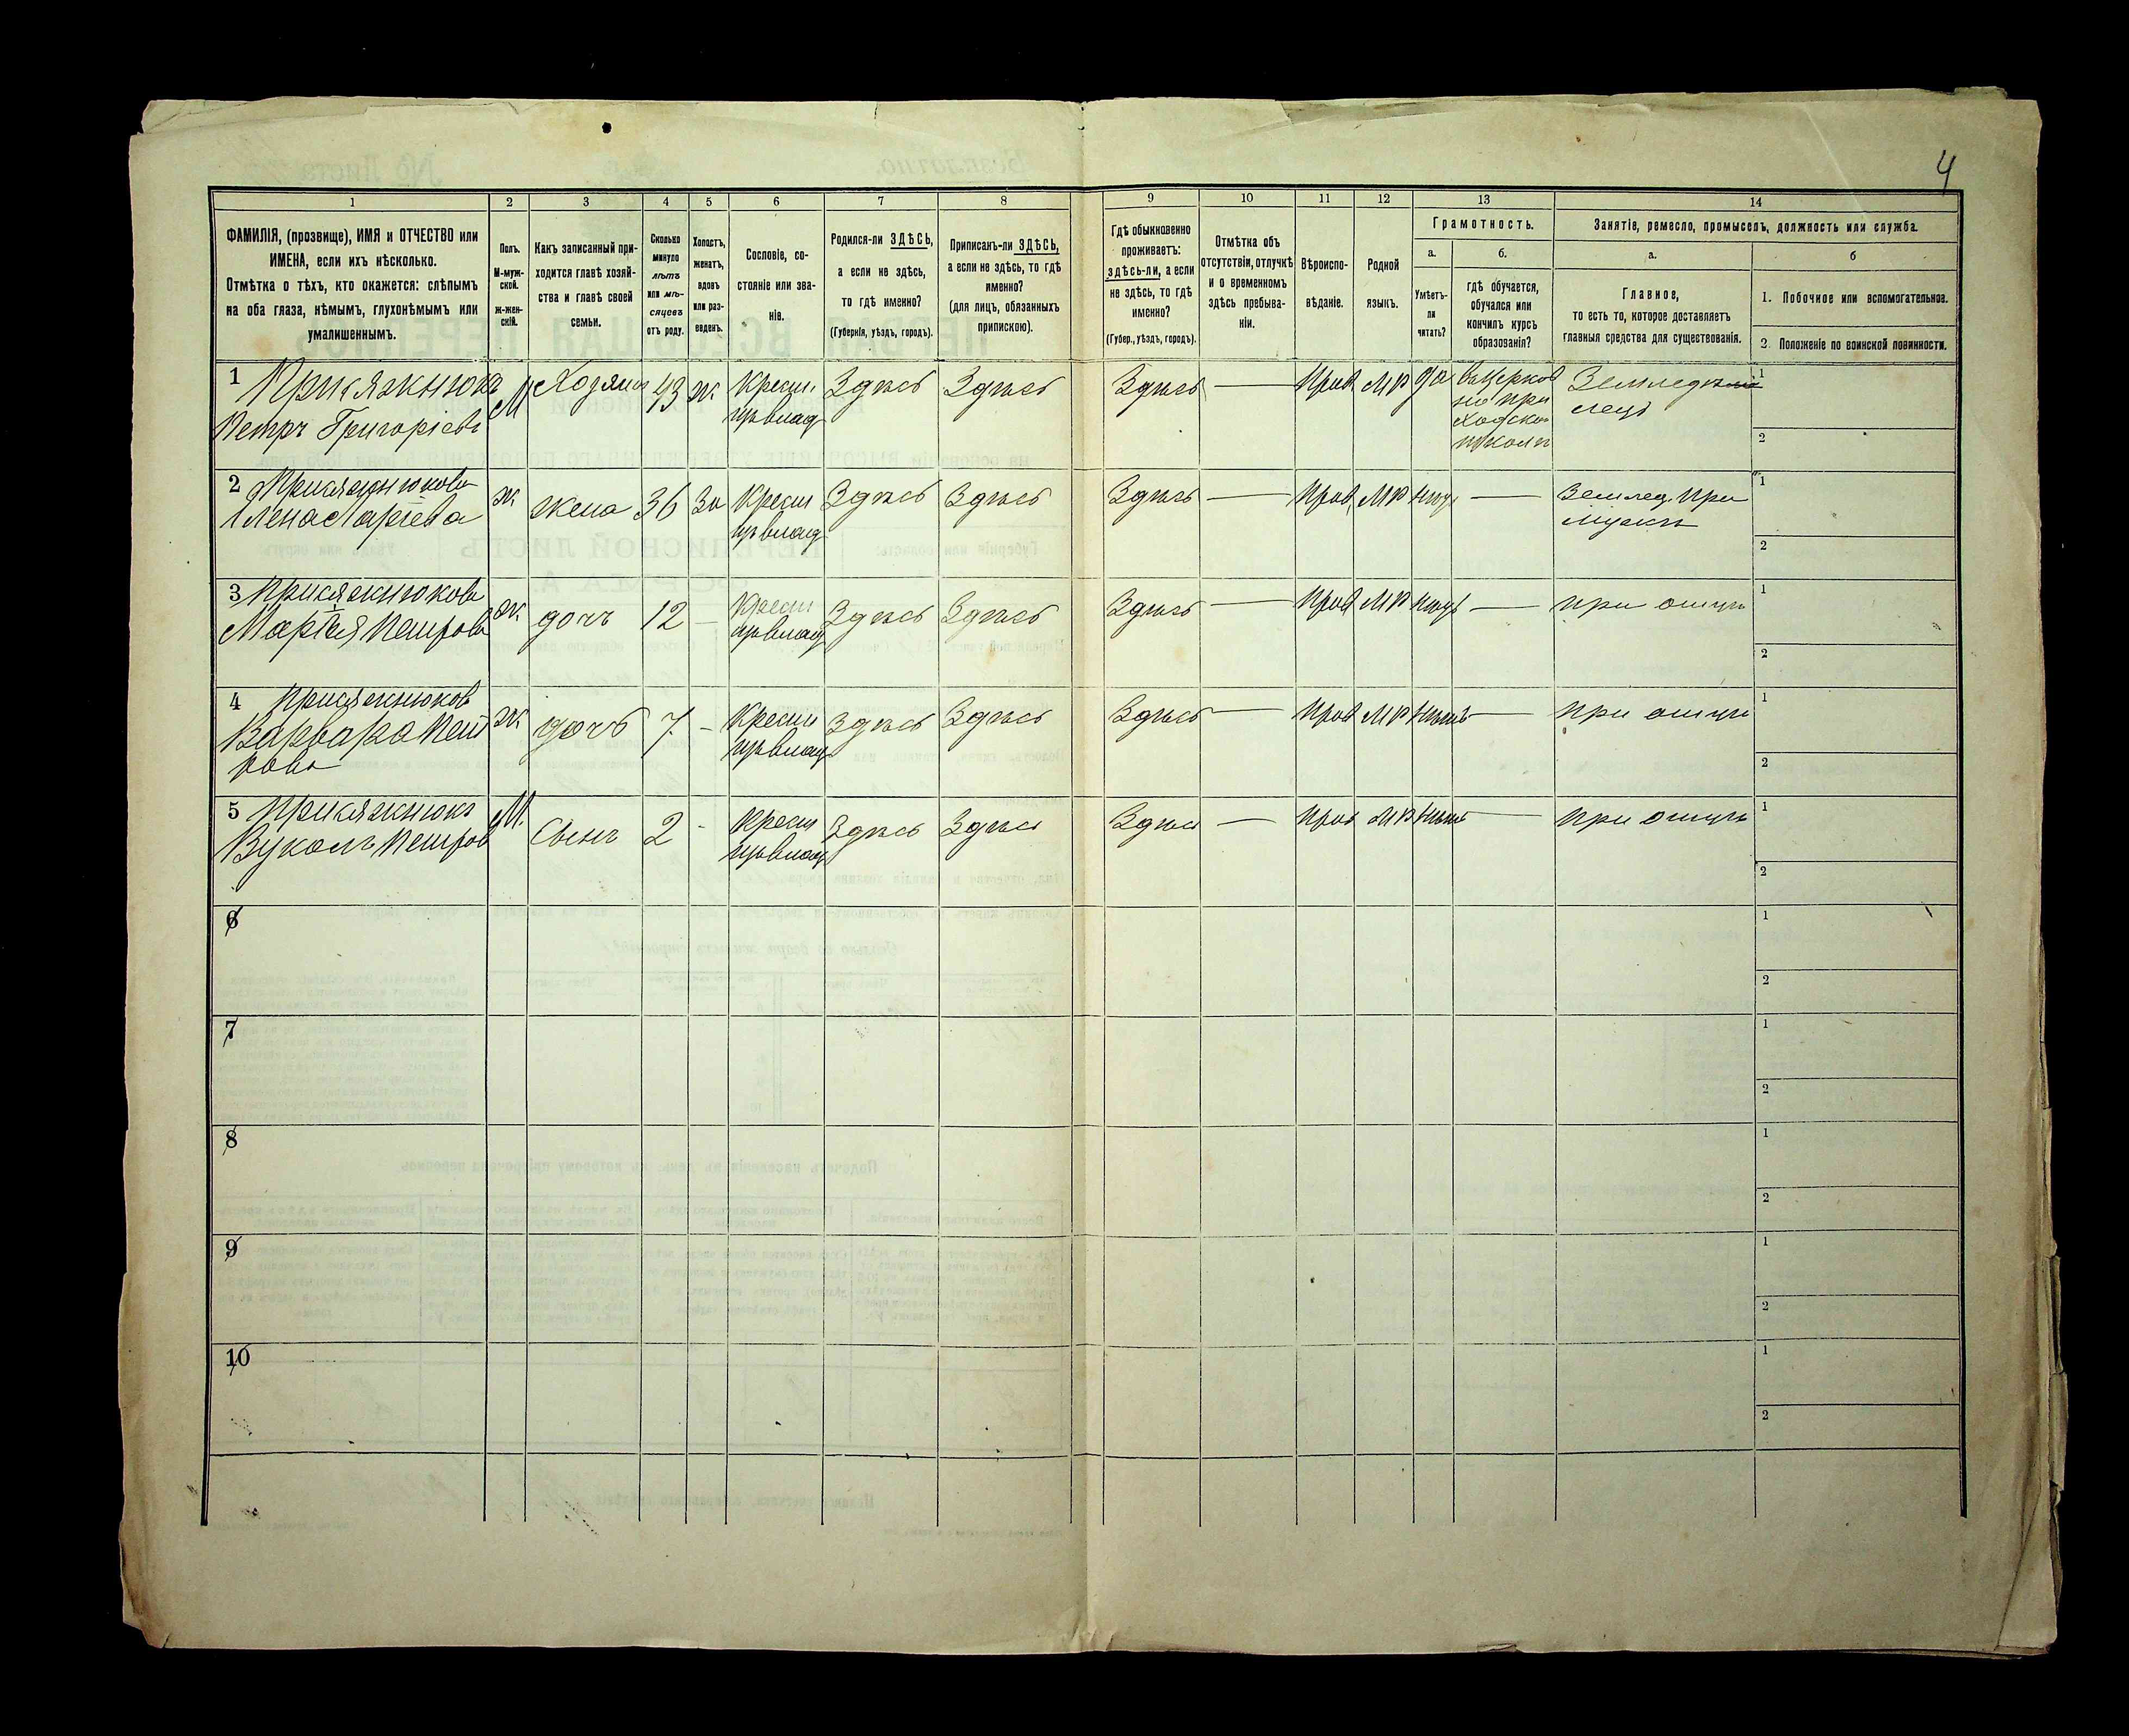 4
1 2 3 4 5 6 7 8 9 10 11 12 13 14
ФАМИЛІЯ, (прозвище), ИМЯ и ОТЧЕСТВО или
ИМЕНА, если ихъ нѣсколько.
Отмѣтка о тѣхъ, кто окажется: слѣпымъ
на оба глаза, нѣмымъ, глухонѣмымъ или
умалишеннымъ.
Полъ.
М-муж-
ской.
ж-жен-
скій.
Какъ записанный при-
ходится главѣ хозяй-
ства и главѣ своей
семьи.
Сколько
минуло
лѣтъ
или мѣ-
сяцевъ
отъ роду.
Холостъ,
женатъ,
вдовъ
или раз-
веденъ.
Сословіе, со-
стояніе или зва-
ніе.
Родился-ли ЗДѢСЬ,
а если не здѣсь,
то гдѣ именно?
(Губернія, уѣздъ, городъ).
Приписанъ-ли ЗДѢСЬ,
а если не здѣсь, то гдѣ
именно?
(для лицъ, обязанныхъ
припискою).
Гдѣ обыкновенно
проживаетъ:
здѣсь-ли, а если
не здѣсь, то гдѣ
именно?
(Губер., уѣздъ, городъ).
Отмѣтка объ
отсутствіи, отлучкѣ
и о временномъ
здѣсь пребыва-
ніи.
Вѣроиспо-
вѣданіе.
Родной
языкъ.
Грамотность.
а.
Умѣетъ-
ли
читать?
б.
гдѣ обучается,
обучался или
кончилъ курсъ
образованія?
Занятіе, ремесло, промыселъ, должность или служба.
а.
Главное,
то есть то, которое доставляетъ
главныя средства для существованія.
б
1. Побочное или вспомогательное.
2. Положеніе по воинской повинности.
1 Присяжнюкъ
Петръ Григорьевъ
М Хозяинъ 43 ж. Крест.
цѣвлад
Здѣсь Здѣсь Здѣсь — Прав МР да
въ Церков
но при
ходской
школѣ
Земледѣ
лецъ
1
2
2 Присяжнюкова
Елена
ж жена 36 За Крест
цѣвлад
Здѣсь Здѣсь Здѣсь — Прав МР нѣтъ —
Землед. При
мужѣ
1
2
3 Присяжнюкова
Марія Петрова
ж дочь 12 — Крест
цѣвлад
Здѣсь Здѣсь Здѣсь — Прав МР нѣтъ — при отцѣ
1
2
4 Присяжнюков
Варвара Пет
рова
ж дочь 7 - Крест
цѣвлад
Здѣсь Здѣсь Здѣсь — Прав МР Нѣтъ — при отцѣ
1
2
5 Присяжнюкъ
Вуколъ Петров
М. Сынъ 2 - Крест
цѣвлад
Здѣсь Здѣсь Здѣсь — Прав МР Нѣтъ — при отцѣ
1
2
6
1
2
7
1
2
8
1
2
9
1
2
10
1
2